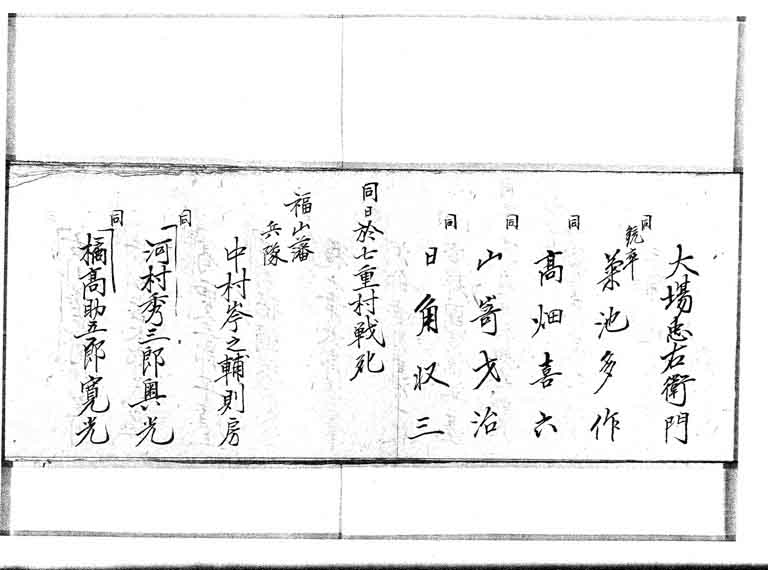 大場忠右衛門
同
銃卒
菊池多作
同
高畑喜六
同
山嵜才治
同
日角収三
同日於七重村戦死
福山藩
兵隊
中村岑之輔則房
同
河村秀三郎興光
同
橘髙助五郎寛光